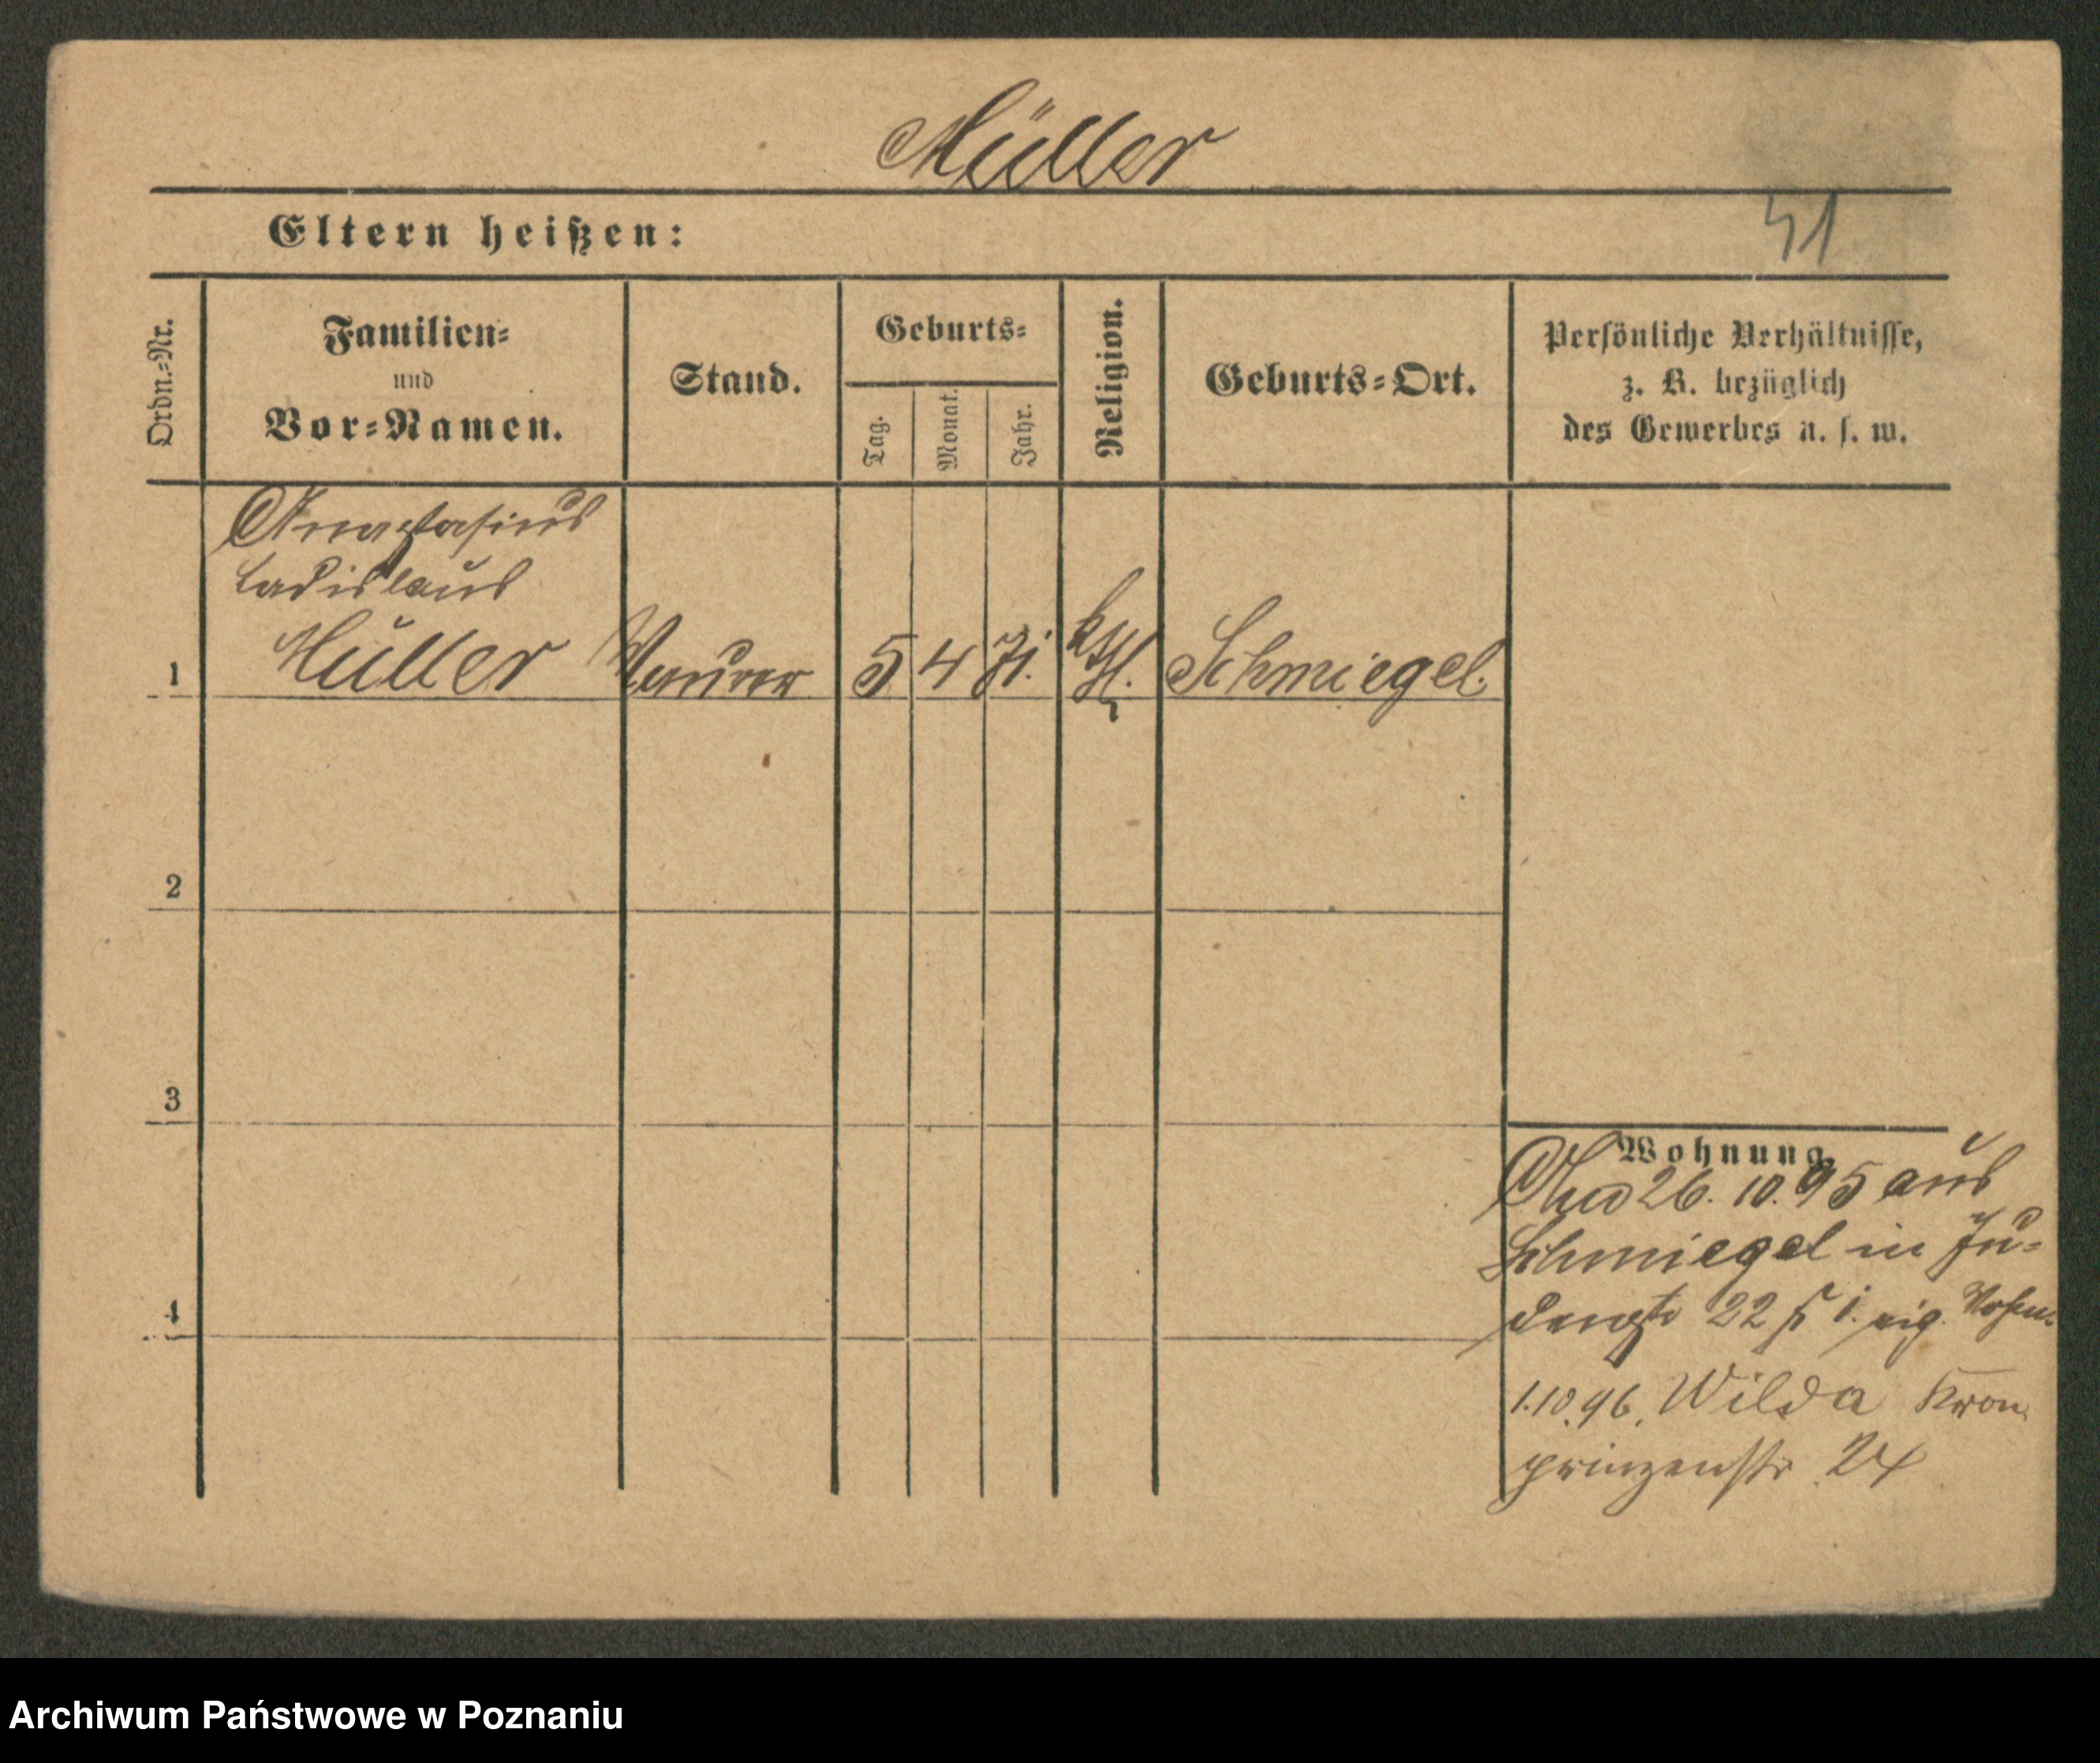 Müller
Eltern heißen:
41
Ordn.=Nr.
Familien=
und
Vor=Namen.
Stand.
Geburts=
Tag.
Monat.
Jahr.
Religion.
Geburts=Ort.
Persönliche Verhältnisse,
z. B. bezüglich
des Gewerbes u. s. w.
Anastasius
Ladislaus
1 Müller Maurer 5 4 71. kth. Schmiegel.
2
3
4
Wohnung.
26. 10. 95 aus
Schmiegel in Ju=
denstr 22 b. eig.
1.10.96. Wilda Kron
prinzenstr 24
Archiwum Państwowe w Poznaniu